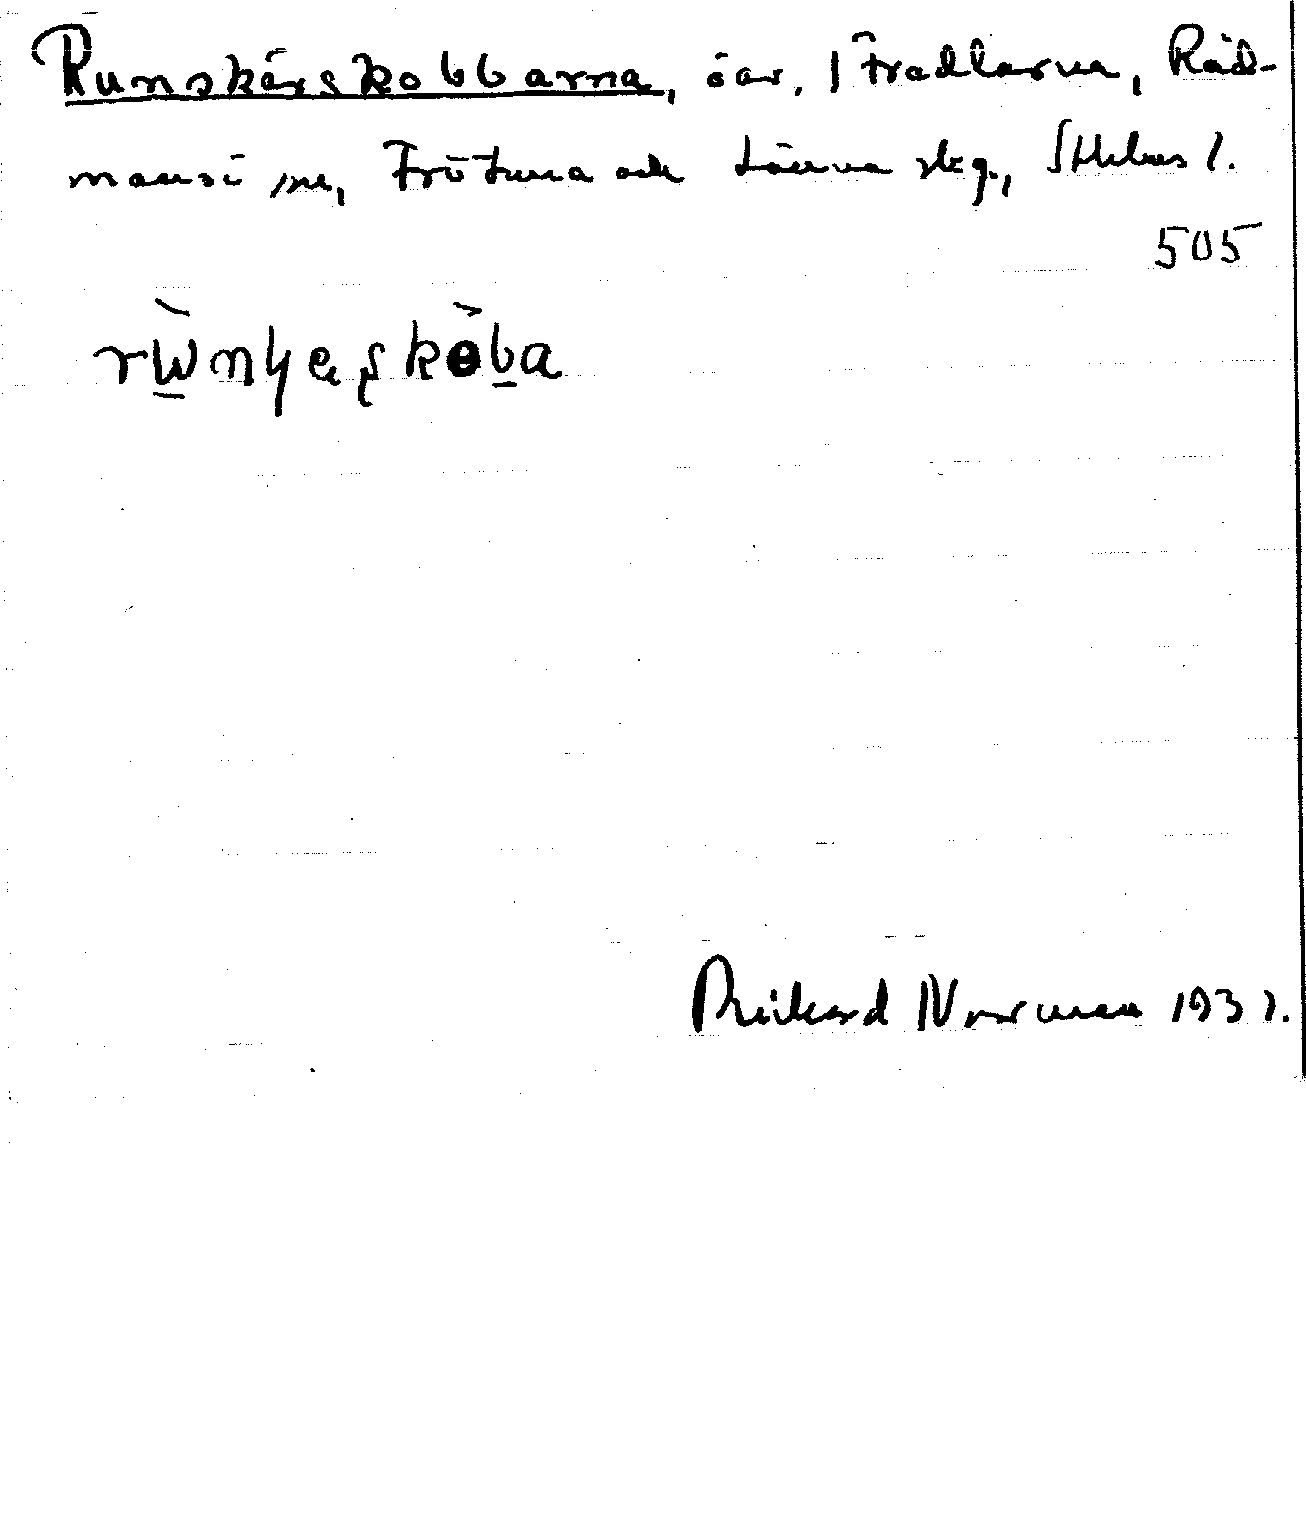 Runskärskobbarna, öar, Fradlarna, Råd-
mansö sn, Frötuna och Länna skg., Sthlms l.
505
Rickard Norrman 1937.